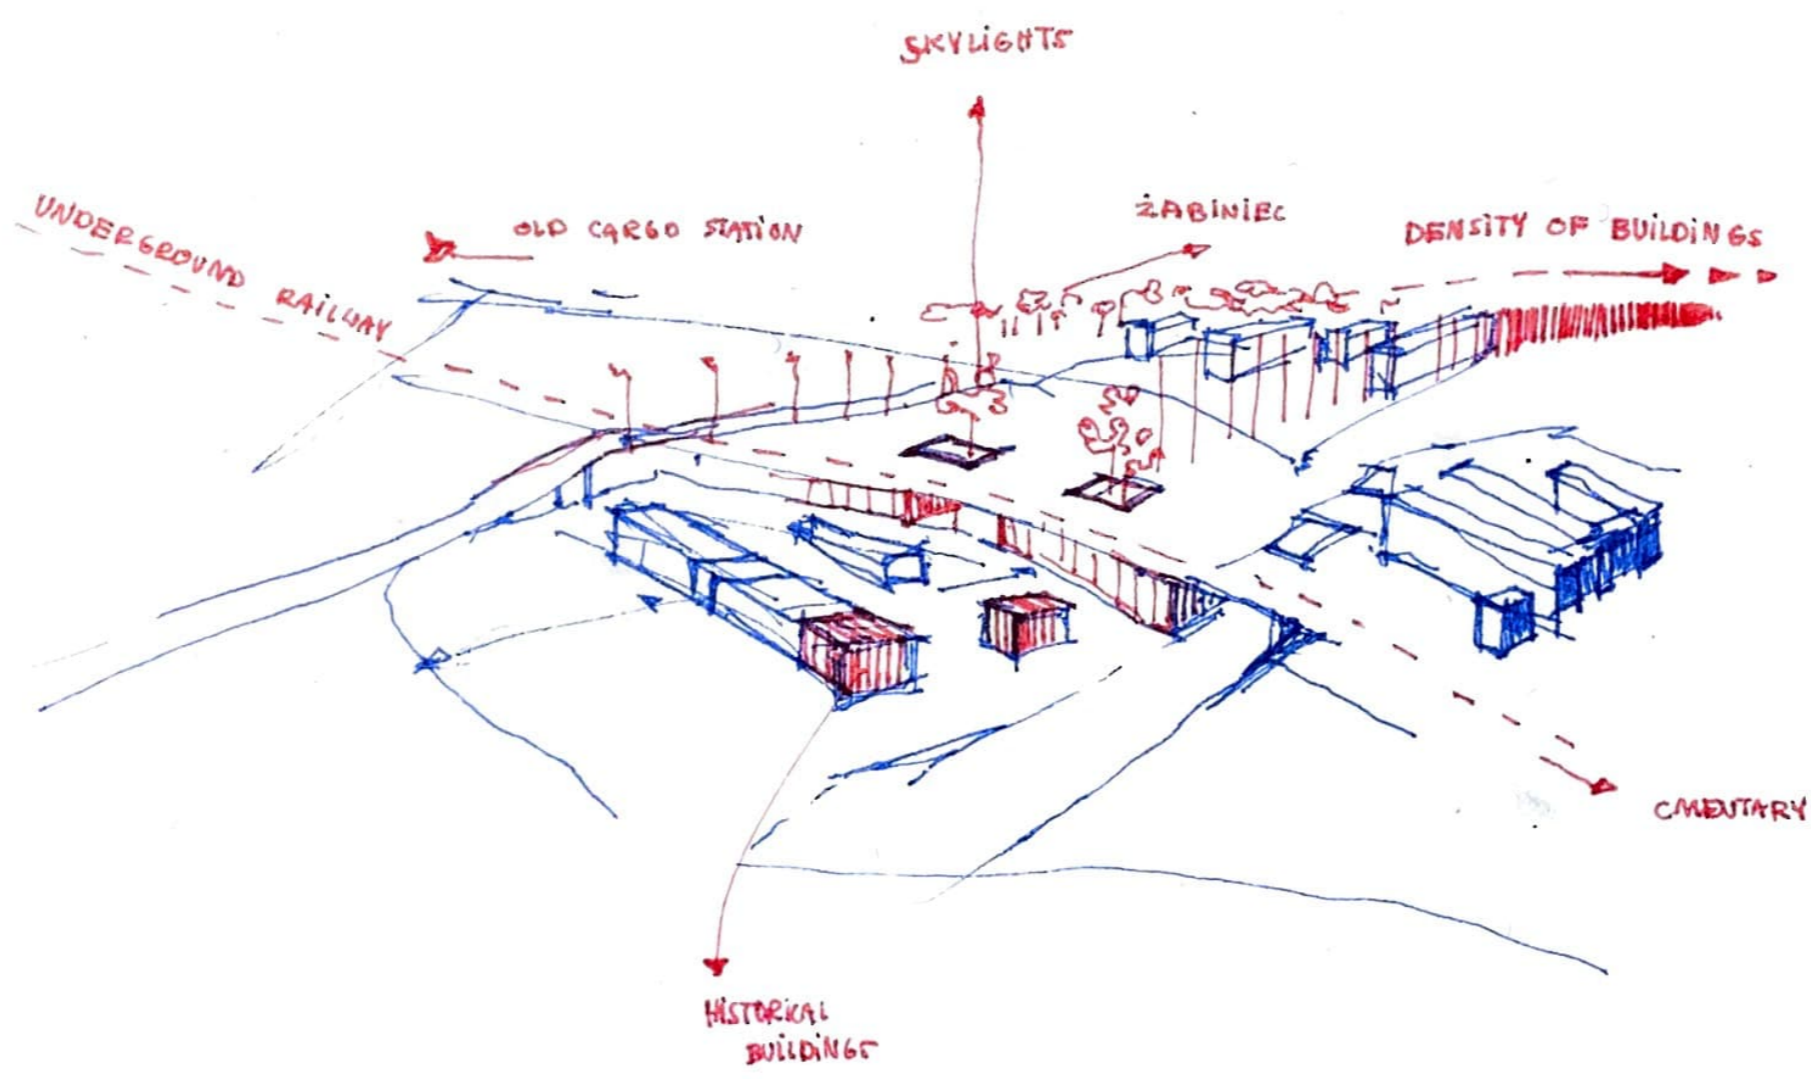 SKYLIGHTS
ŻABINIEC
UNDERGROUND RAILWAY
OLD CARGO STATION
DENSITY OF BUILDINGS
CMENTARY
HISTORICAL
BUILDINGS